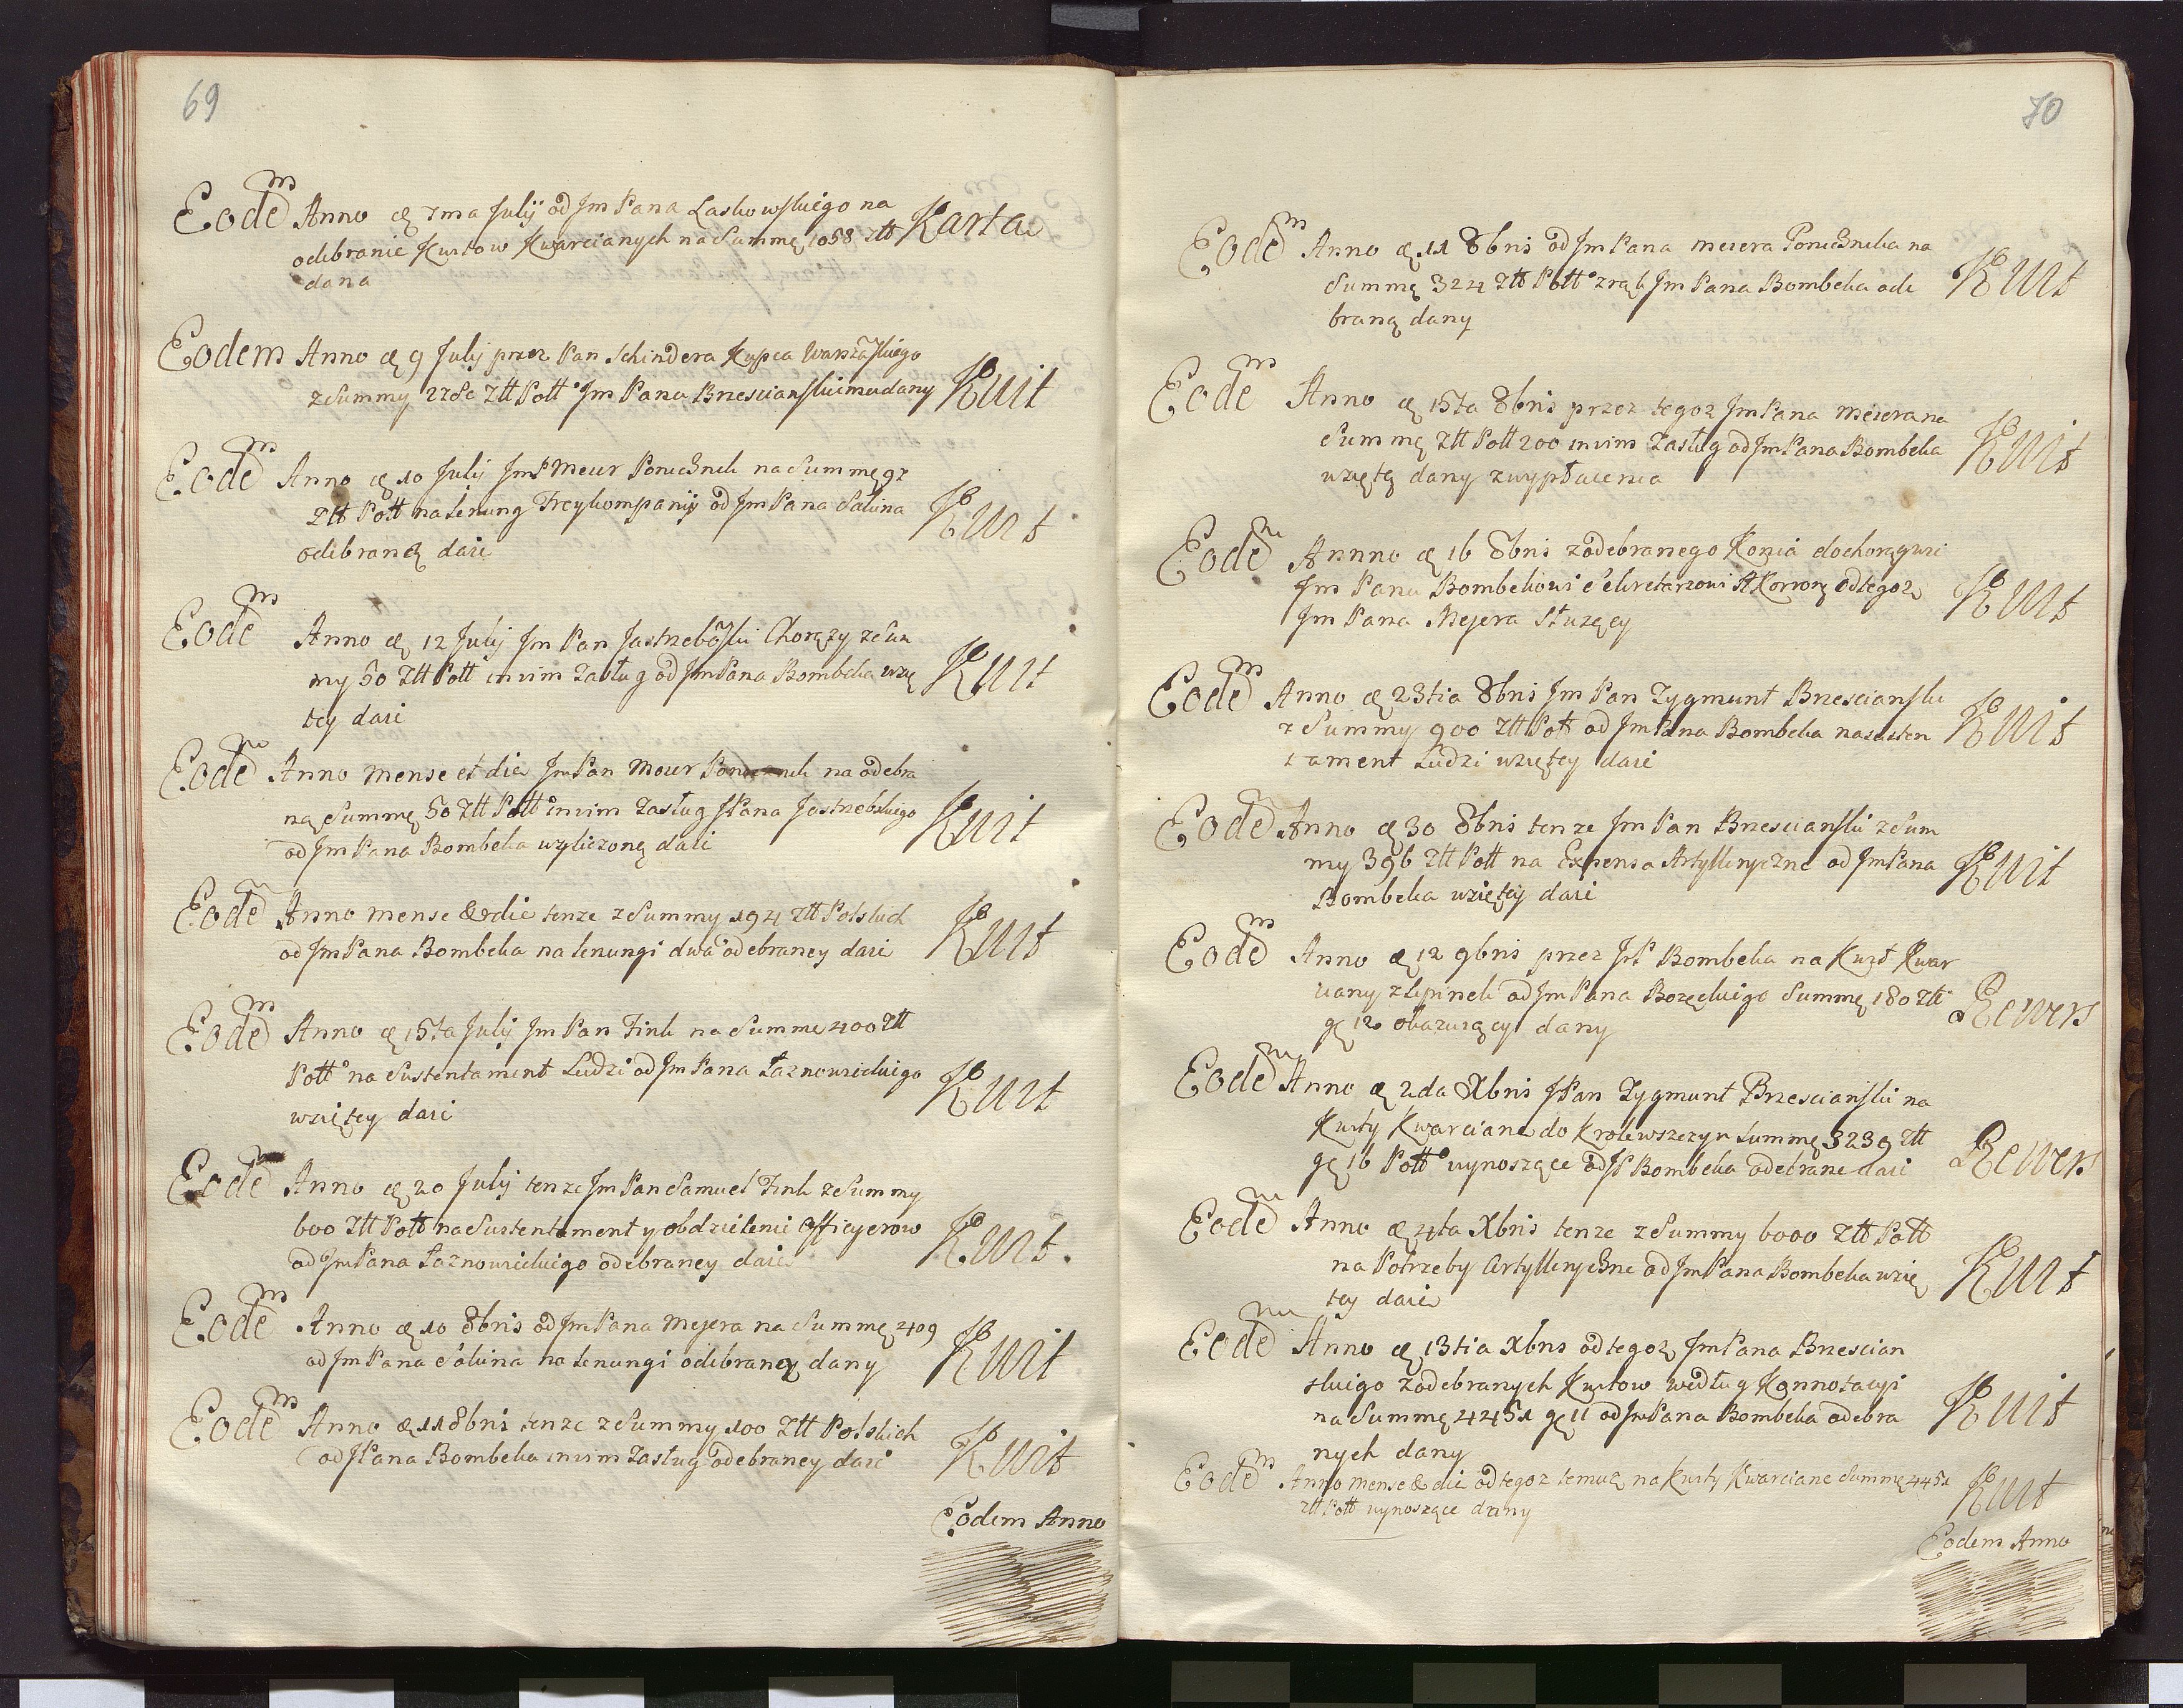 69
Eodem Anno æ 7ma Julij od Jm Pana Laskowskiego na
odebranie Kwitow Kwarcianych na Summę 1058 Ztt Karta
dana
Eodem Anno æ 9 Julij przez Pan Schindera Kupca Warszaskiego
z Summy Ztt Pott Jm Panu Brzescianskiemu dany Kwit
Eodem Anno æ 10 Julij JmP Meier Porucznik na Summę 92
Ztt Pott na Lenung Freykompanij od Jm Pana Salina Kwit
odebraną daie
Eodem Anno æ 12 Julij Jm Pan Jastrzebski Chorązy z Su
my 50 Ztt Pott in vim Zasług od Jm Pana Bombeka wzię Kwit
tey daie
Eodem Anno mense et die Jm Pan Meier Porucznik na odebra
ną Summę 50 Ztt Pott in vim Zasług JPana Jastrzebskiego Kwit
od Jm Pana Bombeka wyliczoną daie
Eodem Anno mense & die tenze z Summy 194 Ztt Polskich
od Jm Pana Bombeka na lenungi dwa odebraney daie Kwit
Eodem Anno æ 15ta Julij Jm Pan Fink na Summe 400 Ztt
Pott na Sustentament Ludzi od Jm Pana Łaznowieckiego Kwit
wzietey daie
Eodem Anno æ 20 Julij tenze Jm Pan Samuel Fink z Summy
600 Ztt Pott na Sustentament y obdzielenie Officyerow Kwit
od Jm Pana Łaznowieckiego odebraney daie
Eodem Anno æ 10 8bris od Jm Pana Mejera na Summę 409
od Jm Pana Salina na lenungi odebraną dany Kwit
Eodem Anno æ 11 8bris tenze z Summy 100 Ztt Polskich
od JPana Bombeka in vim Zasług odebraney daie Kwit
Eodem Anno
70
Eodem Anno æ 11 8bris od Jm Pana meiera Porucznika na
Summę 324 Ztt Pott z rąk Jm Pana Bombeka ode Kwit
braną dany
Eodem Anno æ 15ta 8bris przez tegoz Jm Pana meiera na
Summę Ztt Pott 200 in vim Zasług od Jm Pana Bombeka Kwit
wziętą dany z wypłacenia
Eodem Annno æ 16 8bris z odebranego Konia do chorągwi
Jm Panu Bombekowi Sekretarzowi od tegoz Kwit
Jm Pana Mejera Słuzący
Eodem Anno æ 23tia 8bris Jm Pan Zygmunt Brzescianski
z Summy 900 Ztt Pott od Jm Pana Bombeka na susten Kwit
tament Ludzi wziętey daie
Eodem Anno æ 30 8bris tenze Jm Pan Brzescianski z Sum
my 396 Ztt Pott na Expensa Artylleryczne od Jm Pana Kwit
Bombeka wziętey daie
Eodem Anno æ 12 9bris przez JP Bombeka na Kwit Kwar
ciany z Lipinek od Jm Pana Bozęckiego Summę 180 Ztt Rewers
gę 12 okazuiący dany
Eodem Anno æ 2da Xbris JPan Zygmunt Brzescianski na
Kwity Kwarciane do Krolewszczyn Summę 3239 Ztt
gę 16 Pott wynoszące od JP Bombeka odebrane daie Rewers
Eodem Anno æ 4ta Xbris tenze z Summy 6000 Ztt Pott
na Potrzeby Artylleryczne od Jm Pana Bombeka wzię Kwit
tey daie
Eodem Anno æ 13tia Xbris od tegoz Jm Pana Brzescian
skiego z odebranych Kwitow według Konnotacyi
na Summę 4451 gę 11 od Jm Pana Bombeka odebra Kwit
nych dany
Eodem Anno mense & die od tegoz temuz na Kwity Kwarciane Summę 4451 Kwit
Ztt Pott wynoszące dany
Eodem Anno